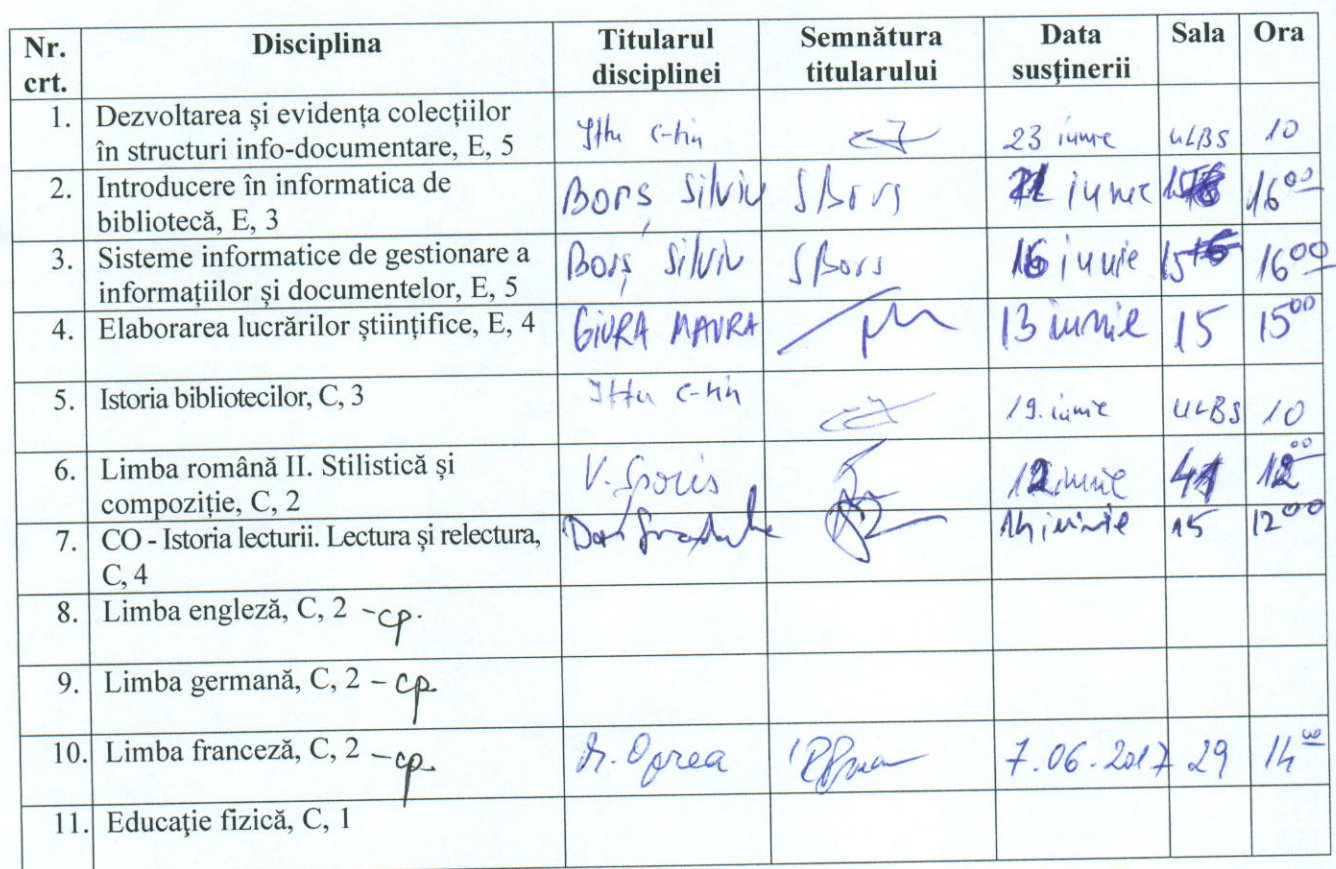 Nr. crt. Disciplina Titularul disciplinei Semnătura titularului Data susținerii Sala Ora
1. Dezvoltarea și evidența colecțiilor în structuri info-documentare, E, 5 Ittu C-tin 23 iunie ULBS 10
2. Introducere în informatica de bibliotecă, E, 3 Borș Silviu SBorș iunie 16⁰⁰
3. Sisteme informatice de gestionare a informațiilor și documentelor, E, 5 Borș Silviu SBorș 16 iunie 15 16⁰⁰
4. Elaborarea lucrărilor științifice, E, 4 GIURA MAURA 13 iunie 15 15⁰⁰
5. Istoria bibliotecilor, C, 3 Ittu C-tin 19. iunie ULBS 10
6. Limba română II. Stilistică și compoziție, C, 2 V. Sporiș 12 iunie 12⁰⁰
7. CO - Istoria lecturii. Lectura și relectura, C, 4 14 iunie 15 12⁰⁰
8. Limba engleză, C, 2 - cp.
9. Limba germană, C, 2 - cp.
10. Limba franceză, C, 2 - cp. Oprea 7.06.2017 29 14⁰⁰
11. Educaţie fizică, C, 1